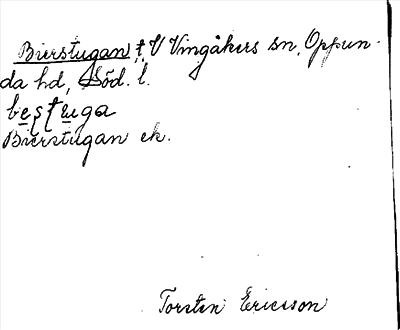 Bierstugan, t, V Vingåkers sn, Oppun-
da hd, Söd. l.
bestuga
Bierstugan ek.
Torsten Ericsson